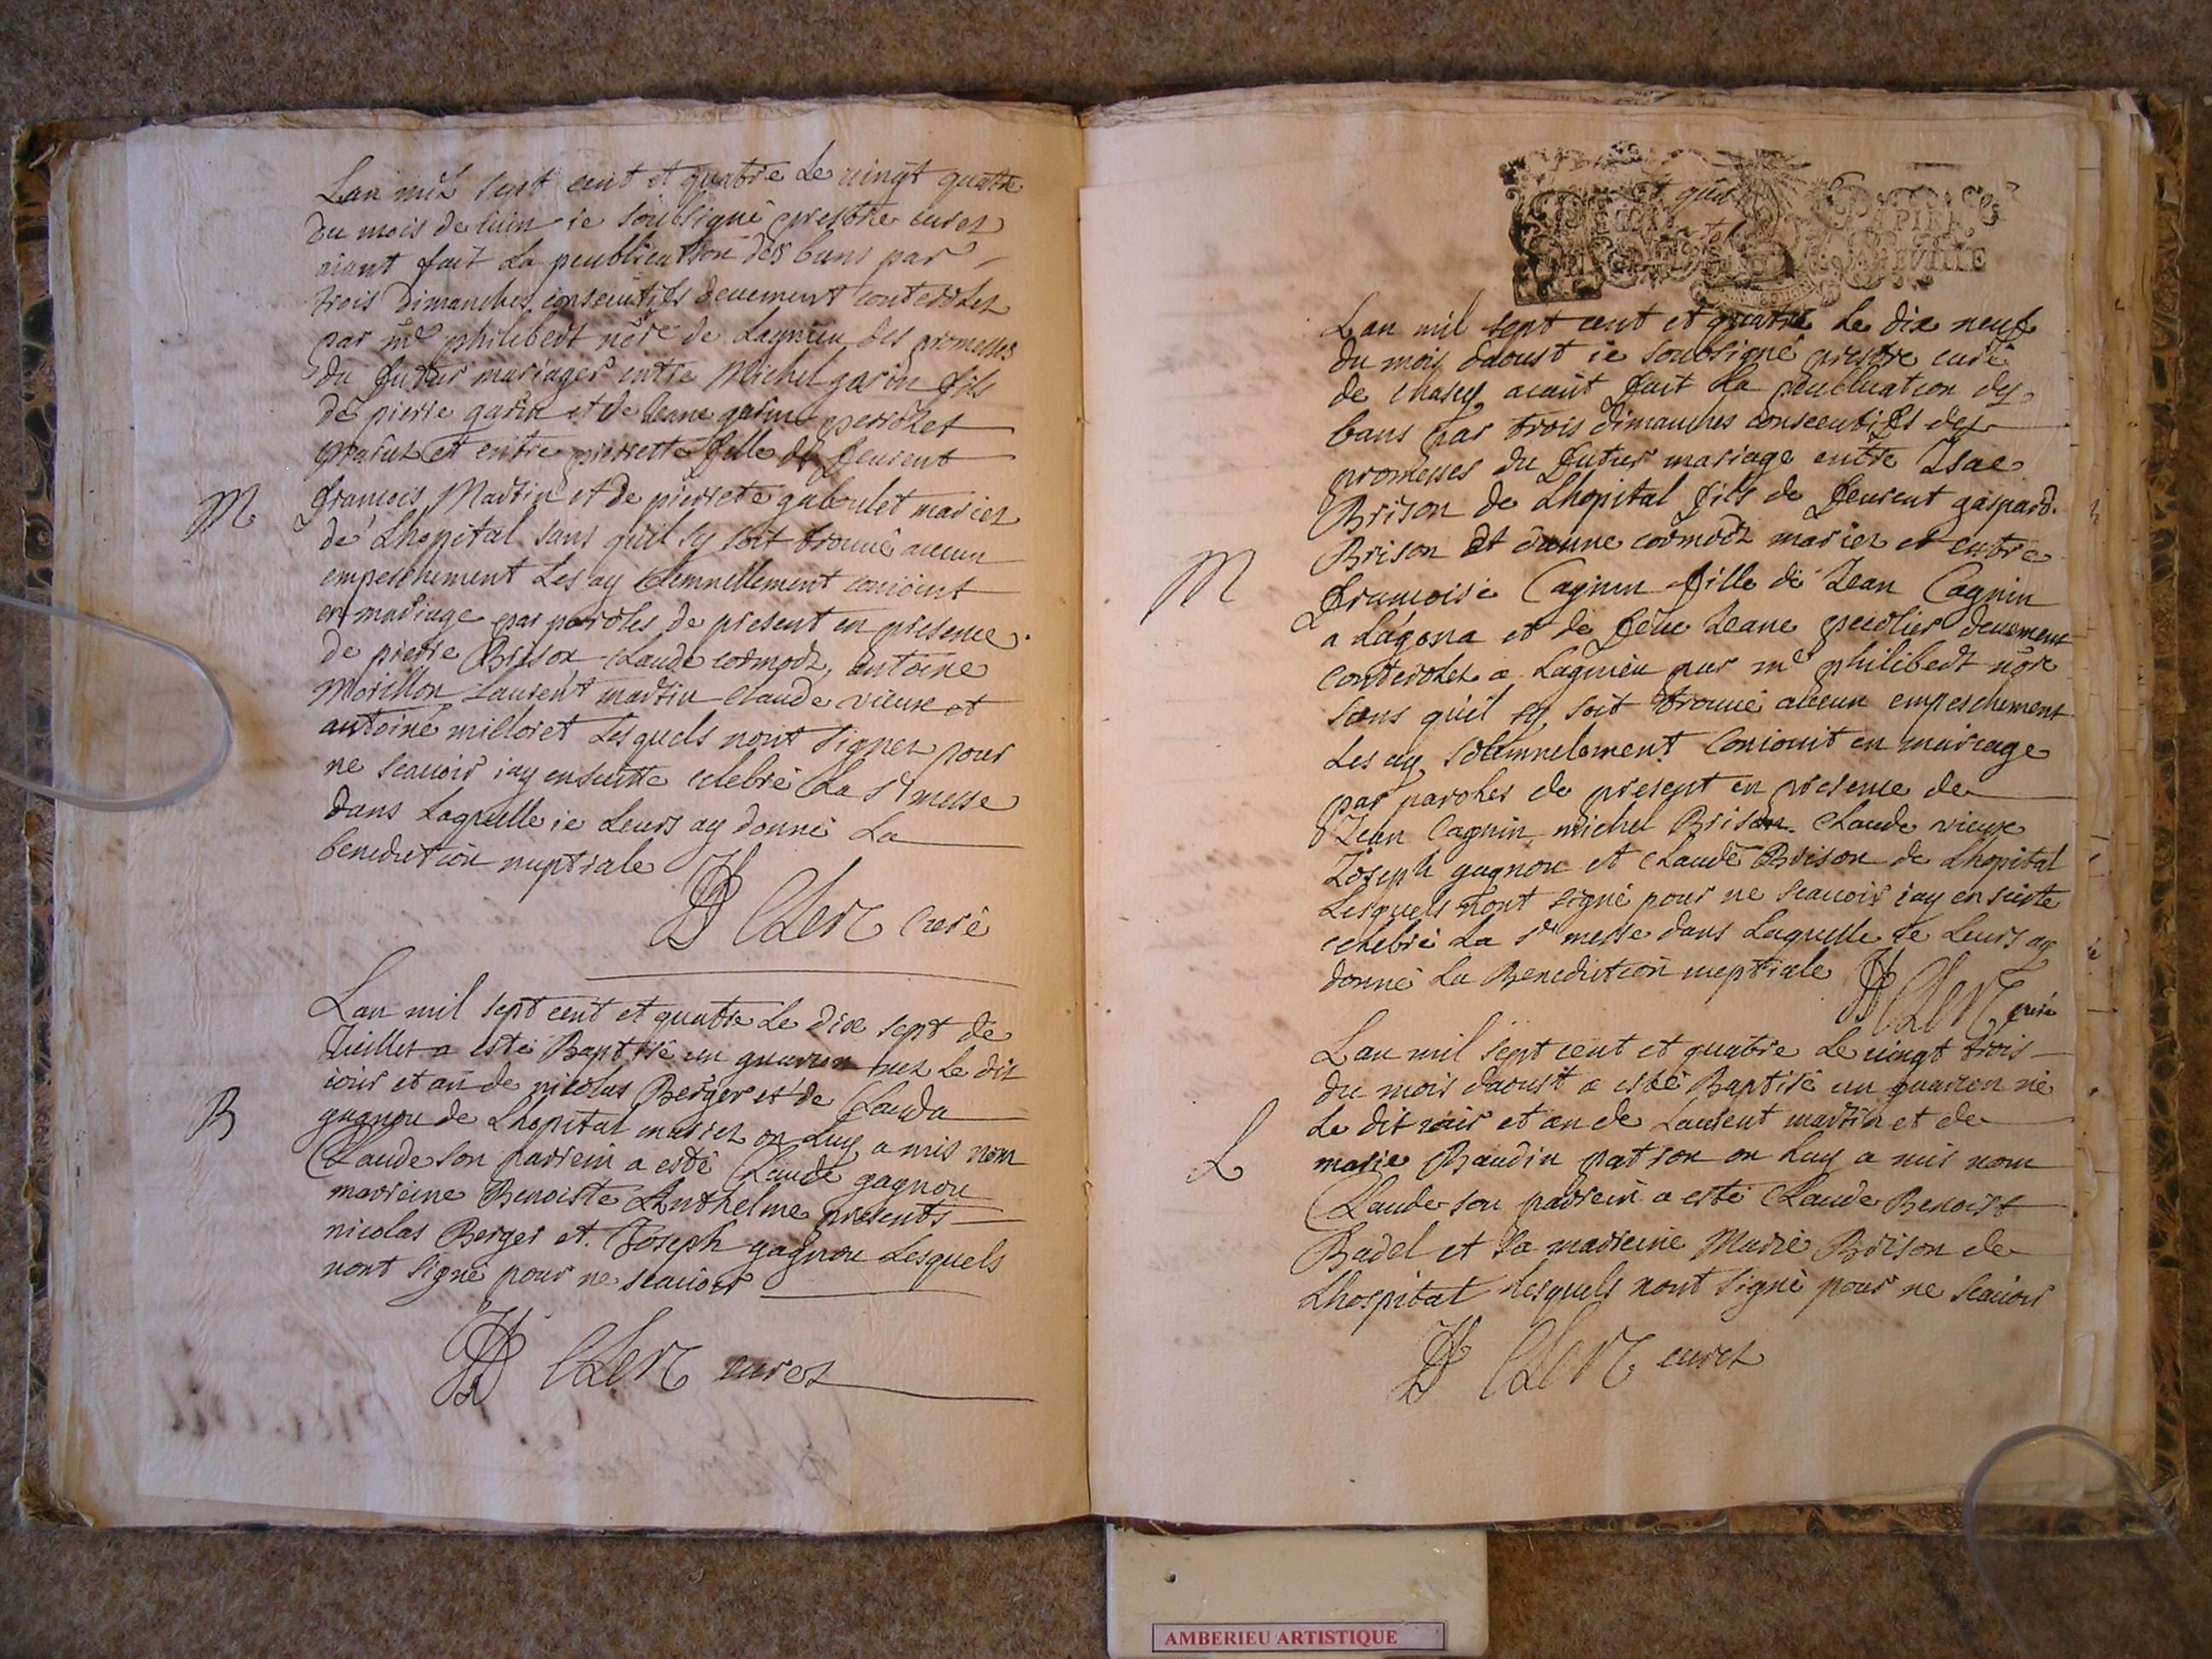 Lan mil sept cent et quatre Le uingt quatre
du mois de iuin ie soubsigné prestre curez
aiant fait La peublication des bans par
trois Dimanches consecutifs deuement conterolez
par me philibert nore de Lagnieu des promesses
du futur mariages entre Michel garin fils
de pierre garin et de Ieane perrolet
et entre pierrette fille de feurent
M
francois Martin et de pierrete gaboulet mariez
de Lhopital sans quil sy soit trouué aucun
empeschement Les ay solemnellement conioint
en mariage par paroles de present en presence
de pierre Brison Claude cormodz, antoine
Morillon Laurent martin Claude vieux et
antoine milloret Lesquels nont signez pour
ne scauoir iay ensuitte celebré La ste messe
dans Laquelle ie Leurs ay donné La
benediction nuptiale
Clerc Curé
Lan mil sept cent et quatre Le dix sept de
Iuillet a esté Baptisé un guarcon nez Le dit
iour et an de nicolas Berger et de Clauda
B
gagnou de Lhopital mariez on Luy a mis nom
Claude son parrein a esté Claude gagnou
marreine Benoiste Anthelme presents
nicolas Berger et Joseph gagnou Lesquels
nont signé pour ne scauoir
Clerc curez
PAPIER
Lan mil sept cent et quatre Le dix neuf
du mois daoust ie soubsigné prestre curé
de Chasey aiant fait La peublication des
bans par trois dimanches consecutifs des
promesses du futur mariage entre Isac
Brison de Lhopital fils de feurent gaspard
Brison et cormodz mariez et entre
M
francoise Cagnin fille de Jean Cagnin
a Lagena et de feue Ieane perolier deuement
Conterolez a Lagnieu par me philibert nore
sans quil sy soit trouué aucun empeschement
Les ay solemnelement Conioint en mariage
par paroles de present en presence de
Jean Cagnin michel Brison Claude vieux
Joseph gagnon et Claude Brison de Lhopital
Lesquels nont signé pour ne scauoir iay en suitte
celebré La ste messe dans Laquelle ie Leurs ay
donné La Benediction nuptiale
Clerc curé
Lan mil sept cent et quatre Le uingt trois
du mois daoust a esté Baptisé un guarcon né
Le dit iour et an de Laurent martin et de
L
marie Baudin patron on Luy a mis nom
Claude son parrein a esté Claude Benoist
Badel et sa marreine Marie Brison de
Lhospital Lesquels nont signé pour ne scauoir
Clerc curez
AMBERIEU ARTISTIQUE